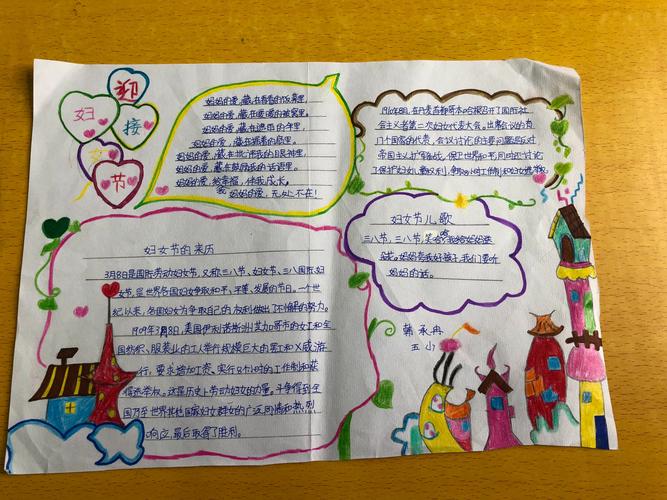 迎
接
妇
女
节
妈妈的爱,藏在香香的饭菜里,
妈妈的爱,藏在暖暖的被窝里。
妈妈的爱,藏在遮雨的伞里,
妈妈的爱,藏在
妈妈的爱,藏在批评我的眼神里,
妈妈的爱,藏在鼓励我的话语里。
妈妈的爱,
伴我成长。
妈妈的爱,无处不在!
1910年8月,在丹麦首都哥本哈根召开了国际社
会主义者第二次妇女代表大会。出席会议的有
几个国家的代表,会议讨论的主要问题是反对
帝国主义扩军备战,保卫世界和平,同时还讨论
了保护妇女儿童权利,争取8小时工作制和妇女选举权。
妇女节的来历
3月8日是国际劳动妇女节,又称三八节、妇女节、三八国际妇
女节,是世界各国妇女争取和平、平等、发展的节日。一个世
纪以来,各国妇女为争取自己的权利做出了不懈的努力。
1909年3月8日,美国伊利诺斯洲芝加哥市的女工和全
国纺织、服装业的工人举行规模巨大的罢工和
游
行,要求增加工资,实行8小时的工作制和获
得选举权。这是历史上劳动妇女的力量。斗争得到全
国乃至世界其他国家妇女群女的广泛同情和热烈
响应,最后取得了胜利。
妇女节儿歌
三八节,三八节,
我给妈妈
妈妈夸我好孩子,我们要听
妈妈的话。
韩承冉
五小